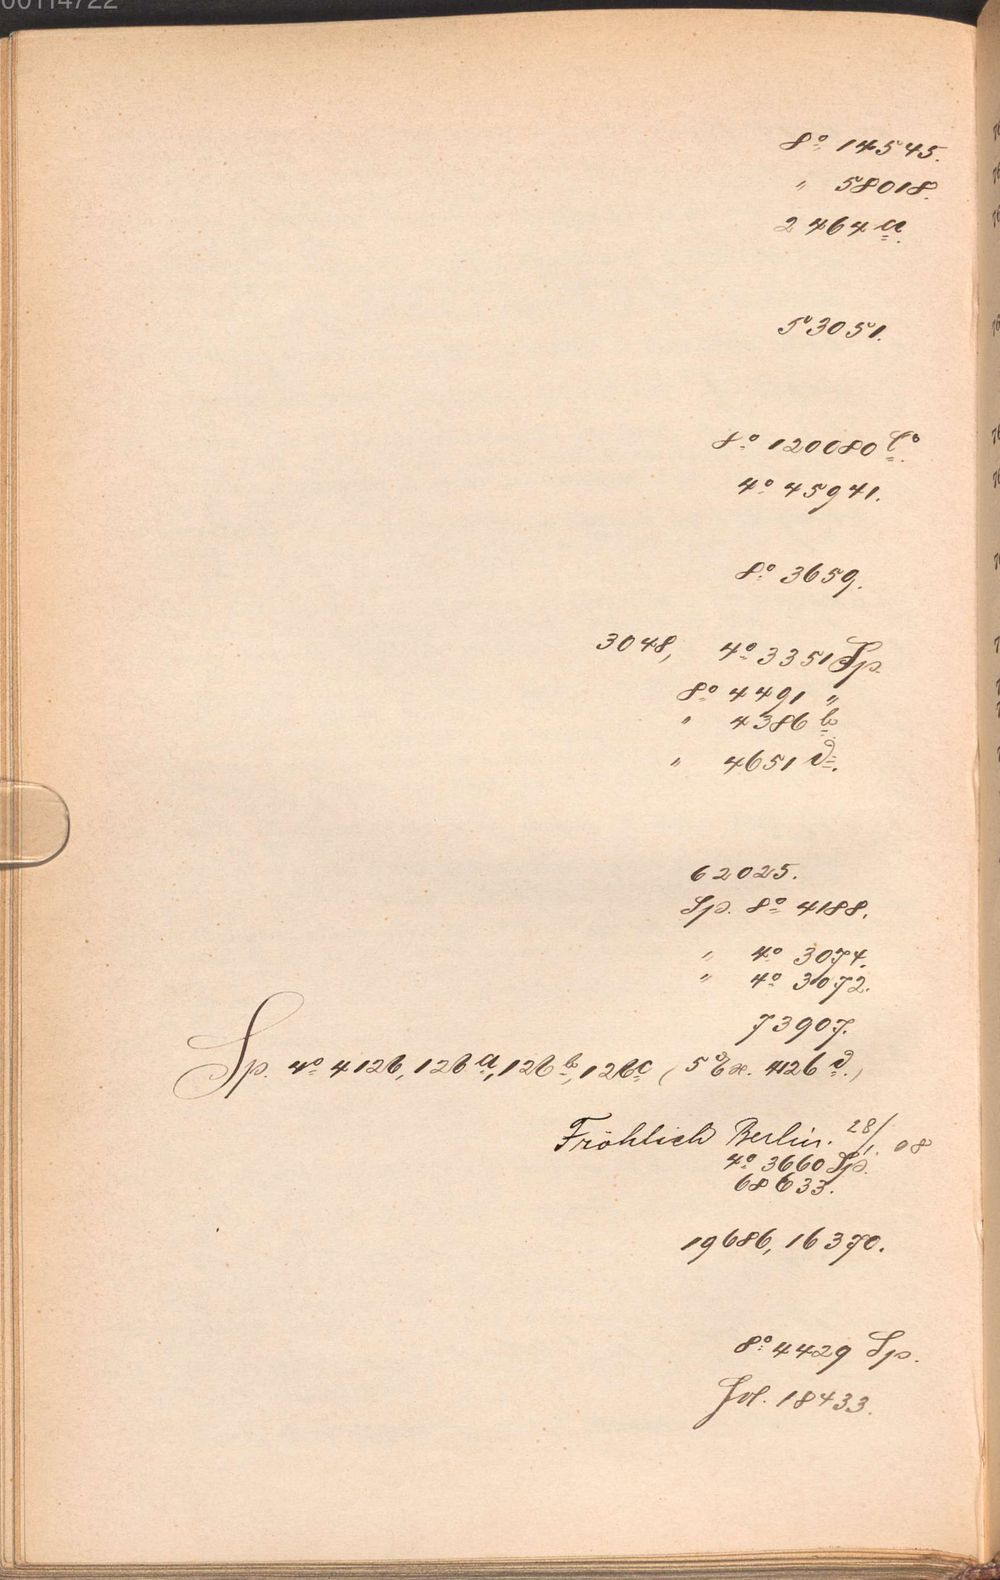 00114722
8º 14545.
" 58018.
2464 a.
53051.
8º 120080 lº
4º 45941.
8º 3659.
3048, 4º 3351 Sp.
8º 4491 "
" 4386 b.
" 4651 d.
62025.
Sp. 8º 4188.
" 4º 3074.
" 4º 3072.
73907.
Sp. 4º 4126, 126 a, 126 b, 126 c (5º Ex. 4126 d.)
Fröhlich Berlin. 28/1. 08
4º 3660 Sp.
68633.
19686, 16370.
8º 4429 Sp.
Fol. 18433.